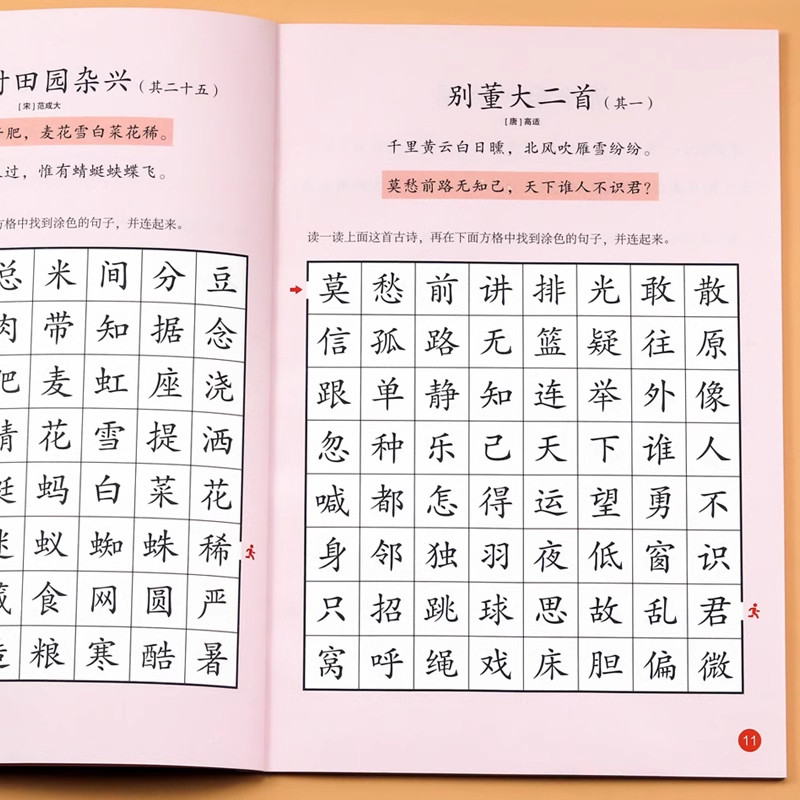 田园杂兴（其二十五）
[宋] 范成大
肥，麦花雪白菜花稀。
过，惟有蜻蜓蛱蝶飞。
方格中找到涂色的句子，并连起来。
总米间分豆
肉带知据念
肥麦虹座浇
蜻花雪提洒
蜓蚂白菜花
蚁蜘蛛稀
食网圆严
粮寒酷暑
别董大二首（其一）
[唐] 高适
千里黄云白日曛，北风吹雁雪纷纷。
莫愁前路无知己，天下谁人不识君？
读一读上面这首古诗，再在下面方格中找到涂色的句子，并连起来。
莫愁前讲排光敢散
信孤路无篮疑往原
跟单静知连举外像
忽种乐己天下谁人
喊都怎得运望勇不
身邻独羽夜低窗识
只招跳球思故乱君
窝呼绳戏床胆偏微
11